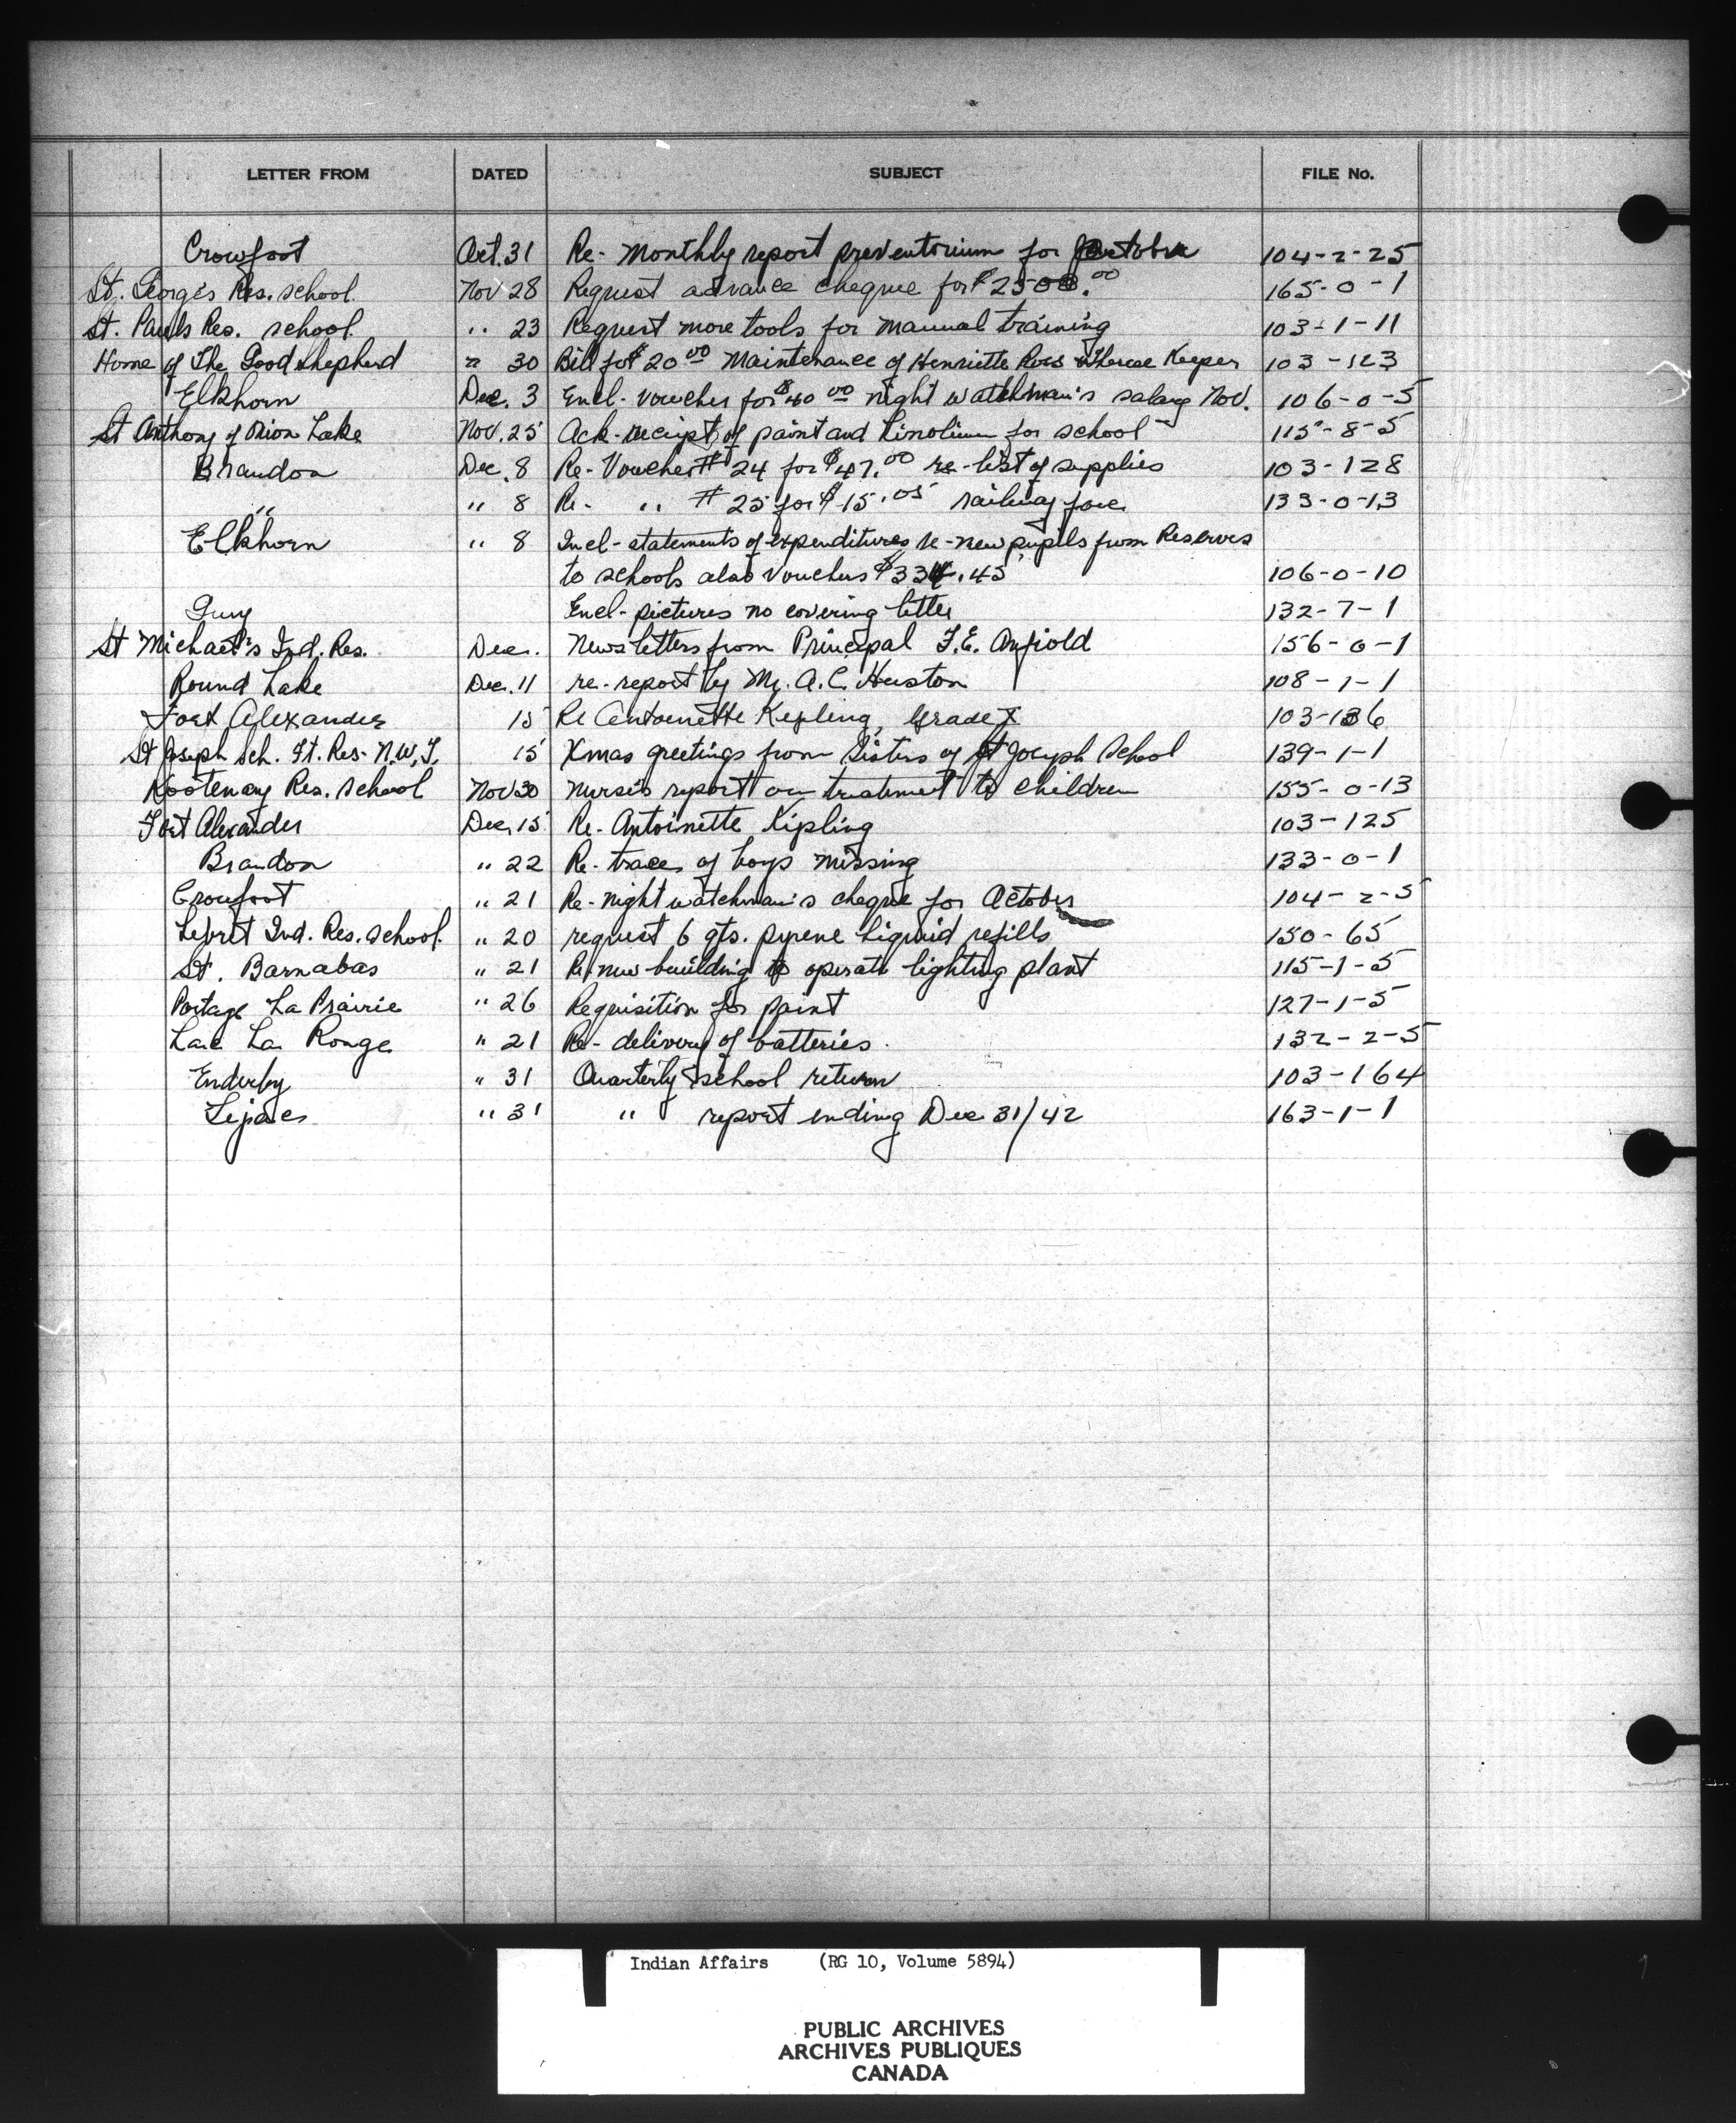 LETTER FROM DATED SUBJECT FILE No.
Crowfoot Oct. 31 Re- Monthly report preventorium for October 104-2-25
St. George's Res. school. Nov 28 Request advance cheque for $2500.00 165-0-1
St. Pauls Res. school. " 23 Request more tools for manual training 103-1-11
Home of The Good Shepherd " 30 Bill for $20 00 Maintenance of Henriette Ross & Therese Keeper 103-123
Elkhorn Dec. 3 Encl- voucher for $40 00 night watchman's salary Nov. 106-0-5
St Anthony of Onion Lake Nov. 25 Ack-reciept of paint and Linolium for school 115-8-5
Brandon Dec. 8 Re- Voucher # 24 for $47.00 re- list of supplies 103-128
" " 8 Re- " # 25 for $15.05 railway fare 133-0-13
Elkhorn " 8 Incl- statements of expenditures re-new pupils from Reserves
to schools also vouchers $334.45 106-0-10
Encl- pictures no covering letter 132-7-1
St Michael's Ind. Res. Dec. News letters from Principal F.E. Anfield 156-0-1
Round Lake Dec. 11 re- report by Mr. A.C. Huston 108-1-1
Fort Alexander 15 Re Antoinette Kepling, Grade X 103-136
St Joseph Sch. Ft. Res- N.W.T. 15 Xmas greetings from Sisters of St Joseph School 139-1-1
Kootenay Res. School Nov 30 Nurse's report on treatment to children 155-0-13
Fort Alexander Dec, 15 Re- Antoinette Kipling 103-125
Brandon " 22 Re- trace of boys missing 133-0-1
Crowfoot " 21 Re- night watchman's cheque for October 104-2-5
Lebret Ind. Res. School. " 20 request 6 qts. pyrene liquid refills 150-65
St. Barnabas " 21 Re new building to operate lighting plant 115-1-5
Portage La Prairie " 26 Requisition for paint 127-1-5
Lac La Ronge " 21 Re- delivery of batteries. 132-2-5
Enderby " 31 Quarterly school return 103-164
Lejac " 31 " report ending Dec 31/42 163-1-1
Indian Affairs (RG 10, Volume 5894)
PUBLIC ARCHIVES
ARCHIVES PUBLIQUES
CANADA